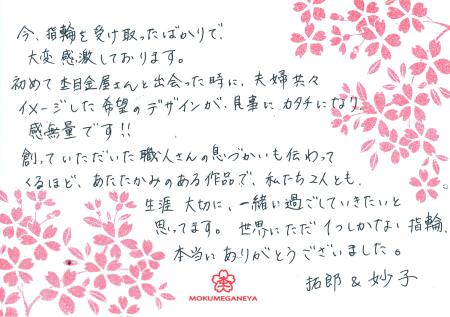 今、指輪を受け取ったばかりで、
大変感激しております。
初めて杢目金屋さんと出会った時に、夫婦共々
イメージした希望のデザインが、見事にカタチになり
感無量です!!
創っていただいた職人さんの息づかいも伝わって
くるほど、あたたかみのある作品で、私たち2人とも、
生涯大切に、一緒に過ごしていきたいと
思ってます。世界にただ1つしかない指輪、
本当にありがとうございました。
拓郎 & 妙子
MOKUMEGANEYA